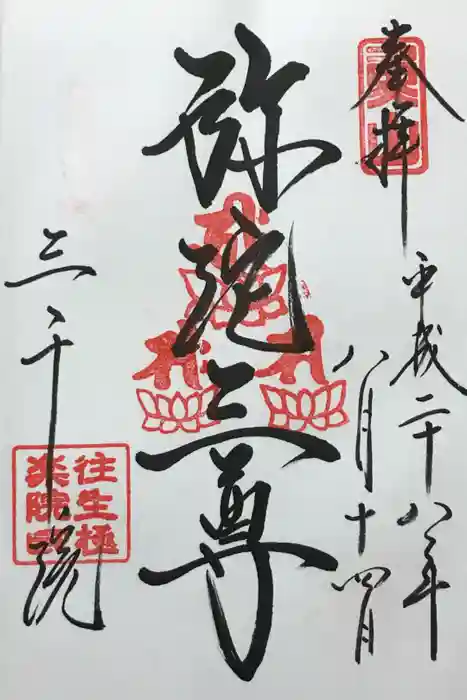 奉拝
平成二十八年
八月十四日
弥陀三尊
三千院
往生極
楽院印